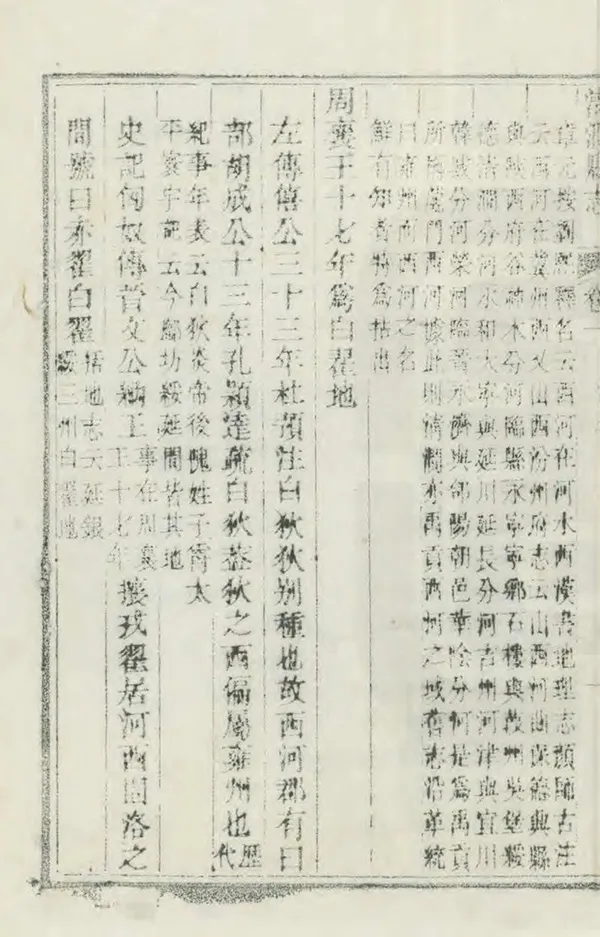 清澗縣志 卷一
章元授劉熙釋名云西河在河水西漢書地理志顏師古注
云西河在冀州西又山西汾州府志云山西河曲保德與縣
與陝西府谷神木分河臨縣永寧寧鄉石樓與葭州吳堡綏
德清澗分河永和大寧與延川延長分河吉州河津與宜川
韓城分河榮河臨晉永濟與郃陽朝邑華陰分河是爲禹貢
所稱龍門西河據此則清澗亦禹貢西河之域舊志沿革統
曰雍州而西河之名
鮮有知者特爲拈出
周襄王十七年爲白翟地
左傳僖公三十三年杜預注白狄狄別種也故西河郡有白
部胡成公十三年孔穎達疏白狄葢狄之西偏屬雍州也歷代
紀事年表云白狄炎帝後隗姓子霄太
平寰宇記云今鄜坊綏延間皆其地
史記匈奴傳晉文公納王事在周襄
王十七年攘戎翟居河西圁洛之
間號曰赤翟白翟括地志云延銀
綏三州白翟地